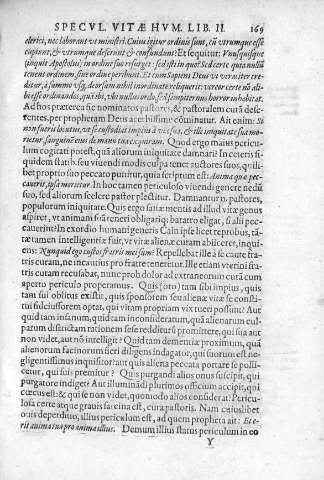 SPECVL. VITÆ HVM. LIB. II. 169
clerici, nec laborant vt ministri. Cuius igitur ordinis sunt, cũ vtrumque esse
cupiunt, & vtrumque deserunt & confundunt? Et sequitur: Vnusquisque
(inquit Apostolus) in ordine suo resurget: sed isti in quo? Sed certe qui nullũ
tenent ordinem, sine ordine peribunt. Et cum Sapiens Deus vt veraciter cre-
ditur, à summo vsq; deorsum nihil inordinatè reliquerit: vereor certe nõ ali-
bi esse ordinandos, quàm ibi, vbi nullus ordo, sed sempiternus horror inhabitat.
Ad hos præterea sic nominatos pastores, & pastoralem curã dese-
rentes, per prophetam Deus acerbissime cõminatur. Ait enim: Si
non fueris locutus, vt se custodiat impius à via sua, & ille iniquitate sua mo-
rietur, sanguinẽ eius de manu tua exquiram. Quod ergo maius pericu-
lum cogitati potest, quã aliorum iniquitate damnari? In ceteris si-
quidem statib. seu viuendi modis culpa tenet suctores suos, quili-
bet proprio suo peccato punitur, quia scriptum est: Anima quæ pec-
cauerit, ipsa morietur. In hoc tamen periculoso viuendi genere nedũ
suo, sed aliorum scelere pastor plectitur. Damnantur n. pastores,
populorum iniquitate. Quis ergo satis mentis ad illud vitæ genus
aspiret, vt animam suã teneri obligariq; baratro eligat, si alij pec-
cauerint? In exordio humani generis Cain ipse licet reprobus, tã-
tæ tamen intelligentiæ fuit, vt vitæ alienæ curam abiiceret, inqui-
ens: Nunquid ego custos fratris mei sum? Repellebat ille à se cautè fra-
tris curam, ne incautius pro fratre teneretur. Ille etiam vterini fra-
tris curam recusabat, nunc prob dolor ad extraneorum curã cum
aperto periculo properamus. Quis (oro) tam sibi impius, quis
tam sui oblitus existit, quis sponsorem seu alienæ vitæ se consti-
tui fideiussorem optat, qui vitam propriam vix tueri possunt? Aut
quid tam insanum, quid tam inconsideratum, quã alienarum cul-
parum districtam rationem sese redditurũ promittere, qui sua aut
non videt, aut nõ intelligit? Quid tam dementiæ proximum, quã
alienorum facinorum fieri diligens indagator, qui suorum est ne-
gligentissimus inquisitor? aut quis aliena peccata portare se polli-
cetur, qui suis premitur? Quis purgandi alios onus suscipit, qui
purgatore indiget? Aut illuminãdi plurimos officium accipit, qui
cœcus est: & qui se non videt, quomodo alios considerat? Pericu-
losa certe atque grauis sarcina est, cura pastoris. Nam cuiuslibet
ouis deperditio, illius periculum est, ad quem propheta ait: Et e-
rit anima tua pro anima illius. Demum illius status periculum in eo
Y